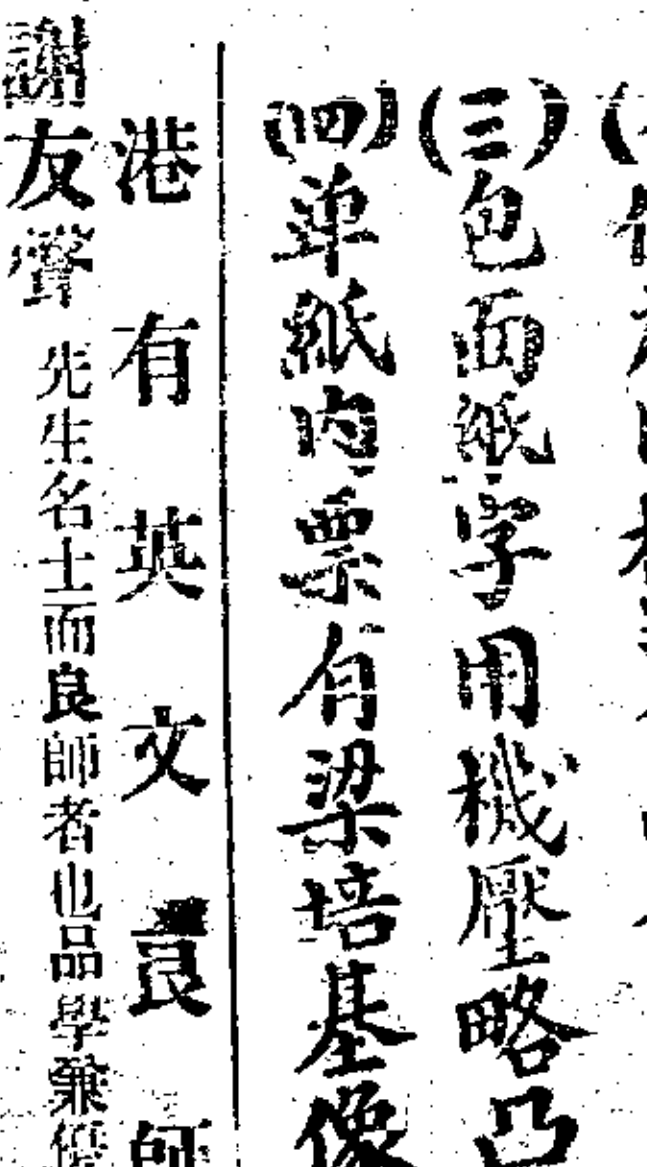 (三)包面紙字用機壓略凸
(四)單紙內票有梁培基像
港有英文良師
謝友聲先生名士而良師者也品學兼優